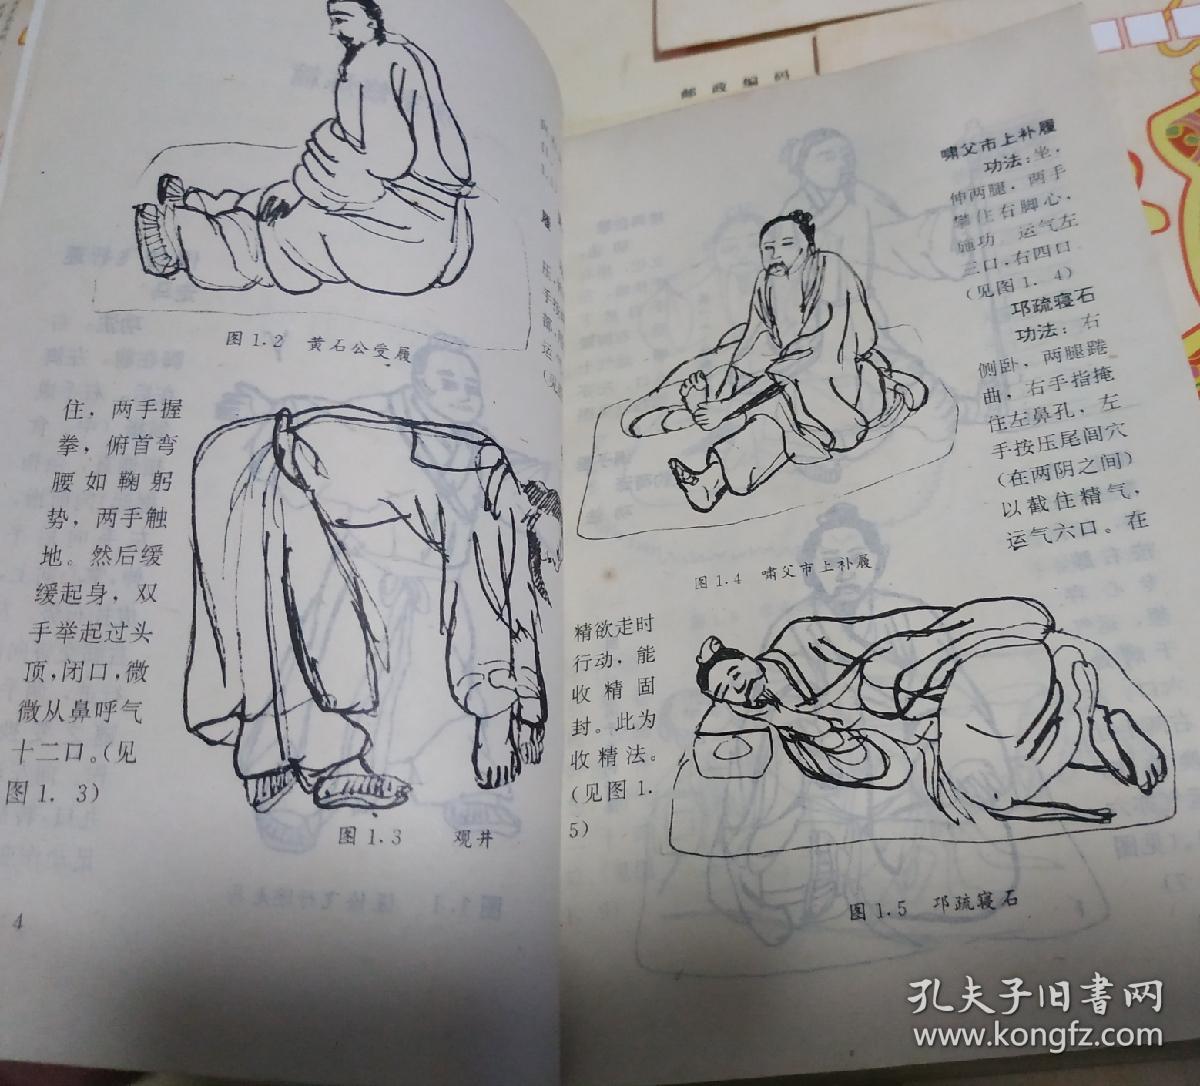 邮政编码
图1.2 黄石公受履
住，两手握
拳，俯首弯
腰如鞠躬
势，两手触
地。然后缓
缓起身，双
手举起过头
顶，闭口，微
微从鼻呼气
十二口。（见
图1．3）
图1.3 观井
4
啸父市上补履
功法：坐，
伸两腿，两手
攀住右脚心，
施功，运气左
三口，右四口
（见图1．4）
邛疏寝石
功法：右
侧卧，两腿踡
曲，右手指掩
住左鼻孔，左
手按压尾闾穴
（在两阴之间）
以截住精气，
运气六口。在
图1.4 啸父市上补履
精欲走时
行动，能
收精固
封。此为
收精法。
（见图1．
5）
图1.5 邛疏寝石
孔夫子旧书网
www.kongfz.com